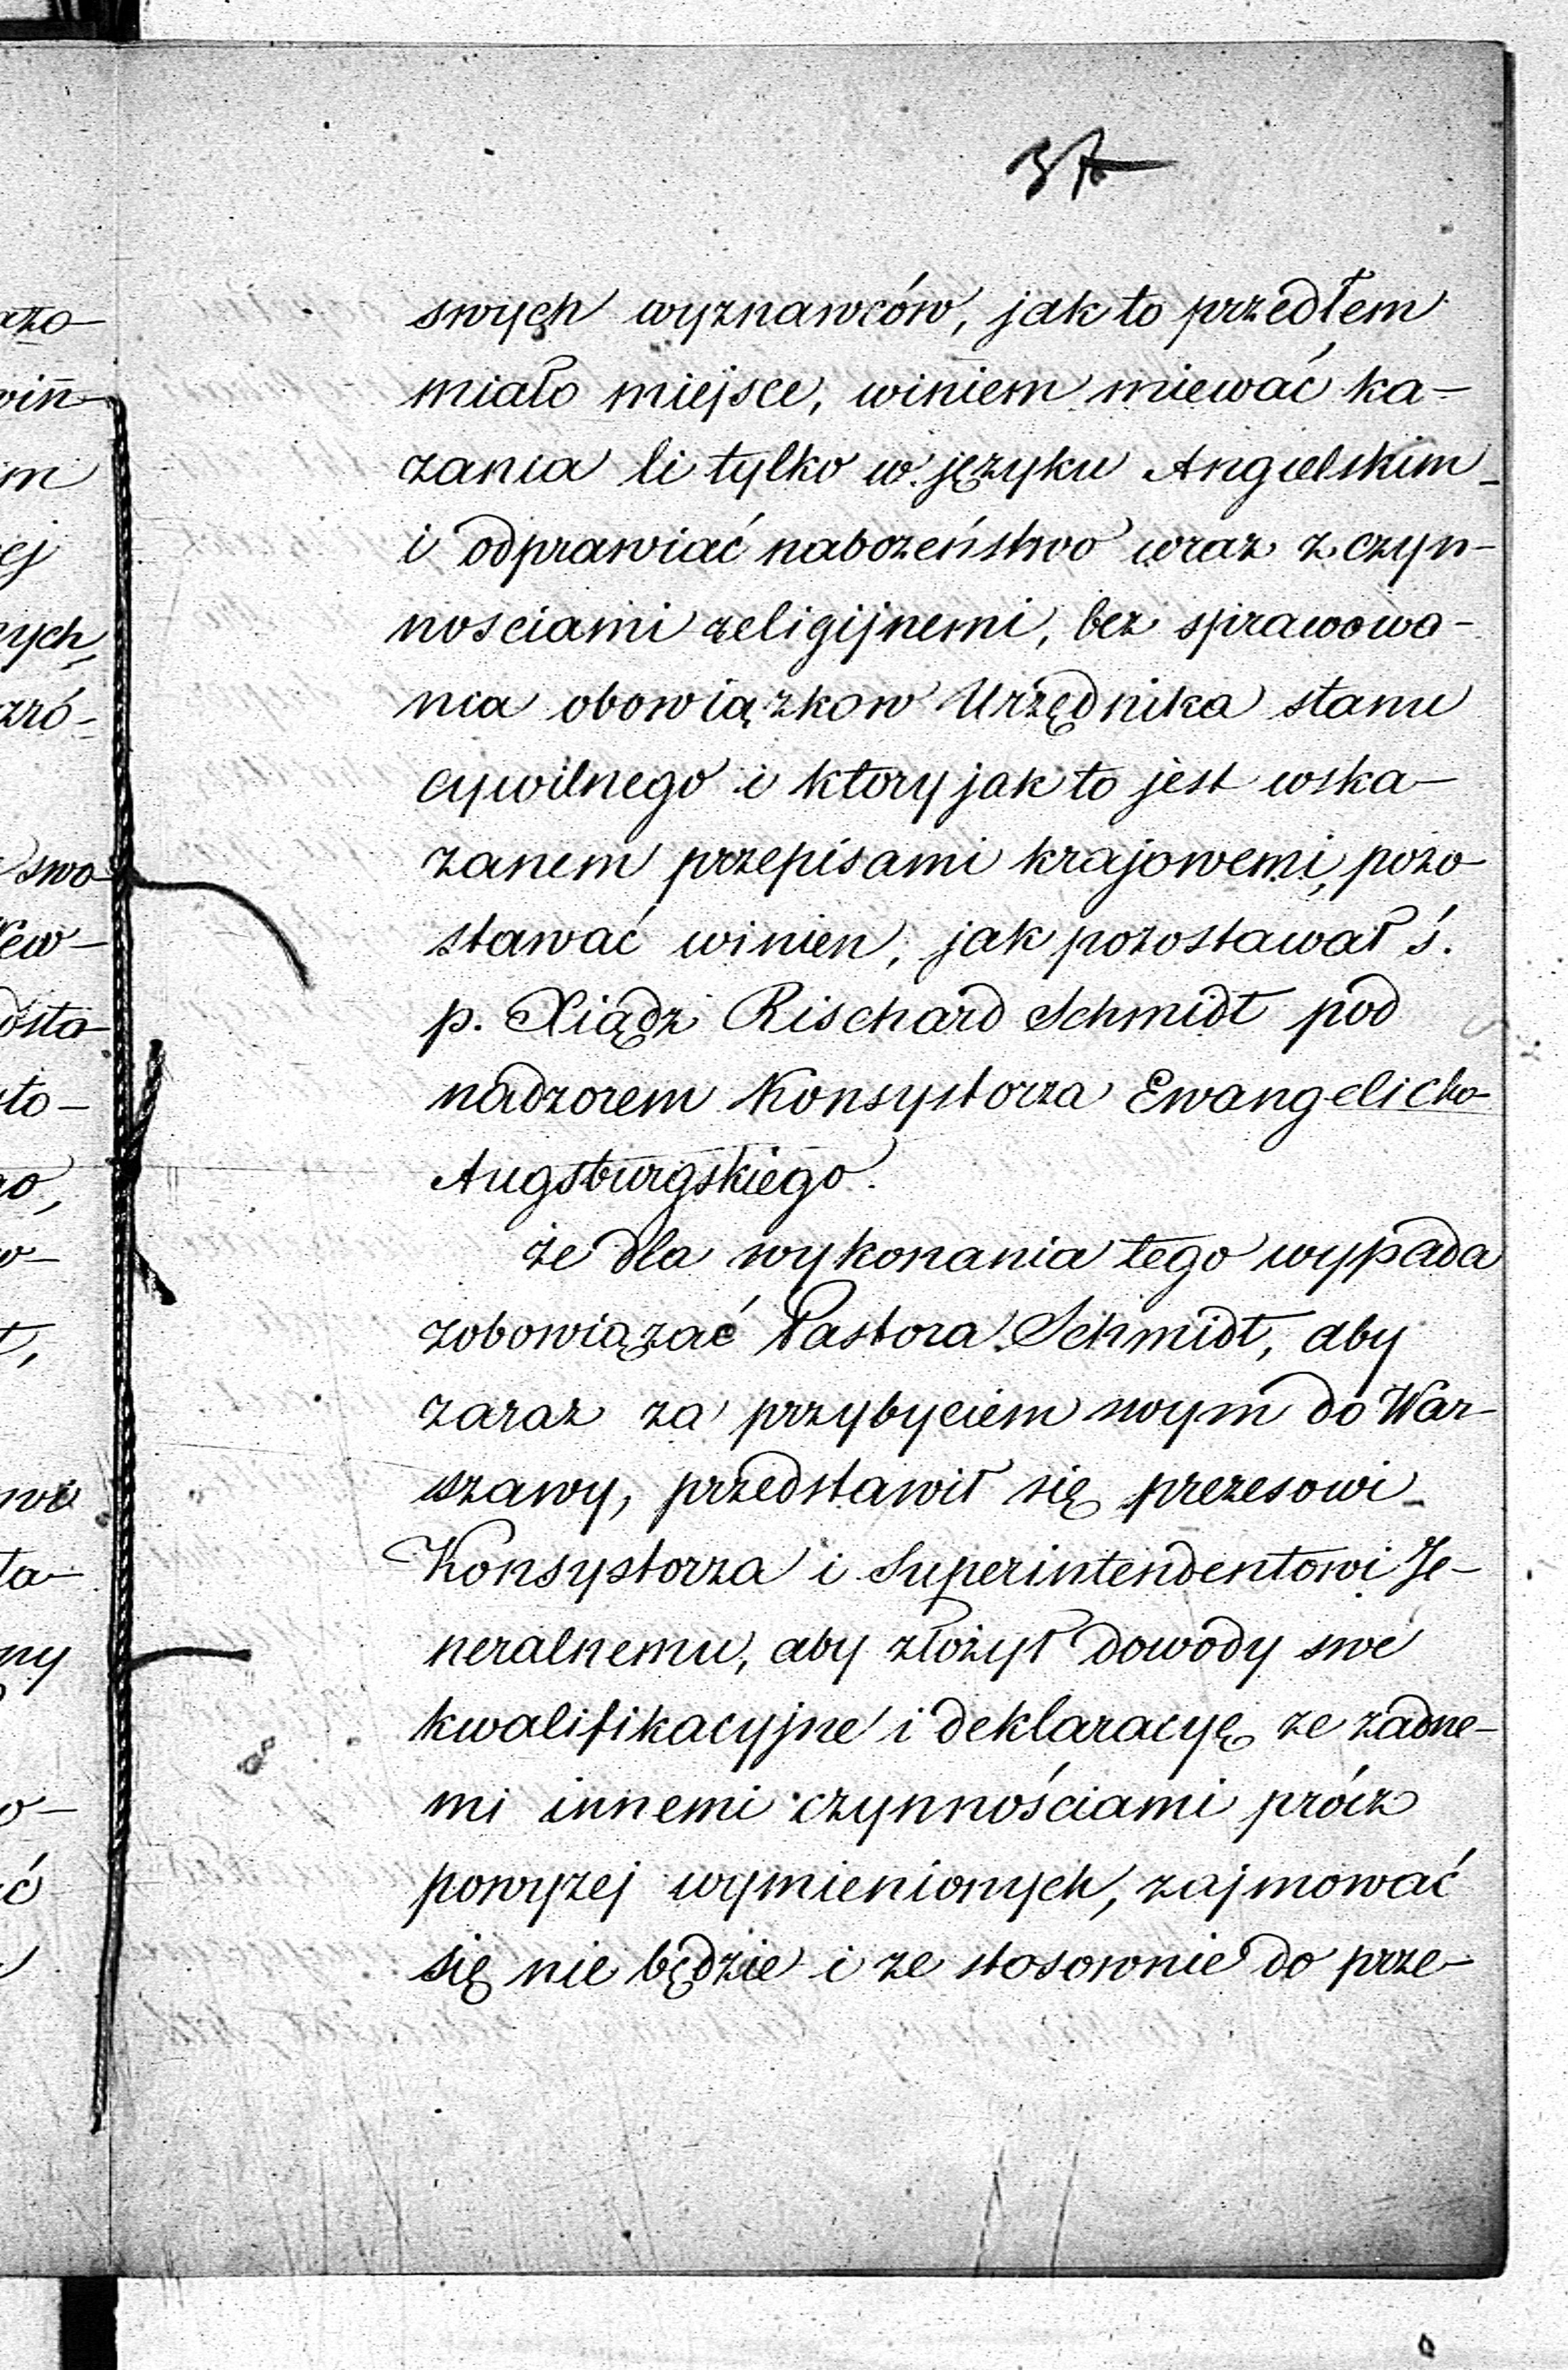 swych wyznawców, jak to przedtem
miało miejsce, winiem miewać ka-
zania li tylko w języku Angielskim
i odprawiać nabozeństwo wraz z czyn-
nosciami religijnemi, bez sprawowa-
nia obowiązkow Urzędnika stanu
cywilnego i ktory jak to jest wska-
zanem przepisami krajowemi, pozo-
stawać winien, jak pozostawał ś.
p. Xiądz Rischard Schmidt pod
nadzorem Konsystorza Ewangelicko-
Augsburgskiego.
że dla wykonania tego wypada
zobowiązać Pastora Schmidt, aby
zaraz za przybyciem swym do War-
szawy, przedstawił się prezesowi
Konsystorza i Superintendentowi Je-
neralnemu, aby złożył dowody swe
kwalifikacyjne i deklaracyę ze zadne-
mi innemi czynnościami prócz
powyzej wymienionych, zajmować
się nie będzie i ze stosownie do prze-